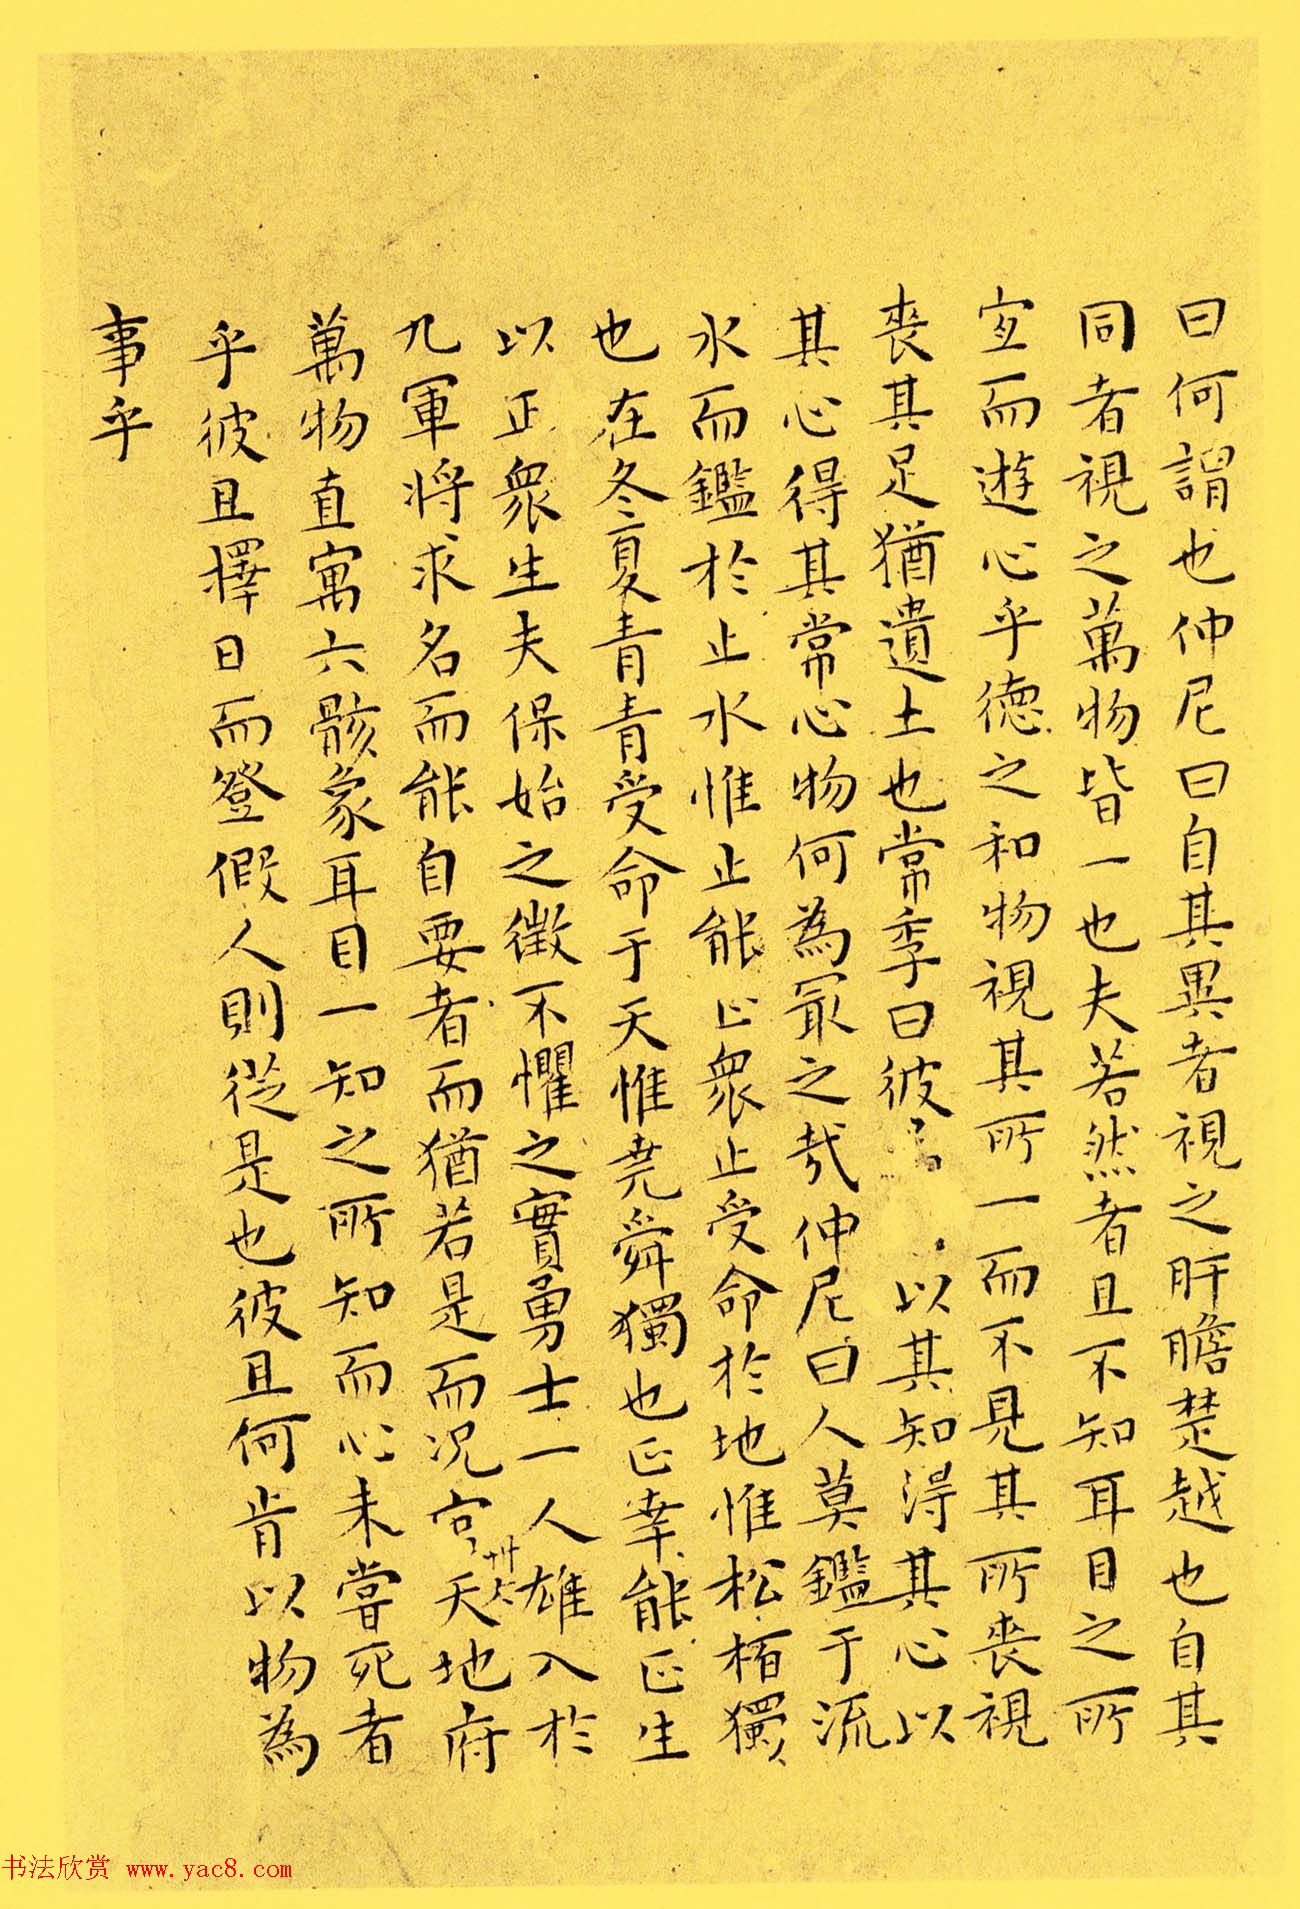 曰何謂也仲尼曰自其異者視之肝膽楚越也自其
同者視之萬物皆一也夫若然者且不知耳目之所
宜而遊心乎德之和物視其所一而不見其所喪視
喪其足猶遺土也常季曰彼以其知得其心以
其心得其常心物何為冣之哉仲尼曰人莫鑑于流
水而鑑於止水惟止能止衆止受命於地惟松栢獨
也在冬夏青青受命于天惟堯舜獨也正幸能正生
以正衆生夫保始之徵不懼之實勇士一人雄入於
九軍將求名而能自要者而猶若是而況官天地府
萬物直寓六骸象耳目一知之所知而心未嘗死者
乎彼且擇日而登假人則從是也彼且何肯以物為
事乎
书法欣赏 www.yac8.com